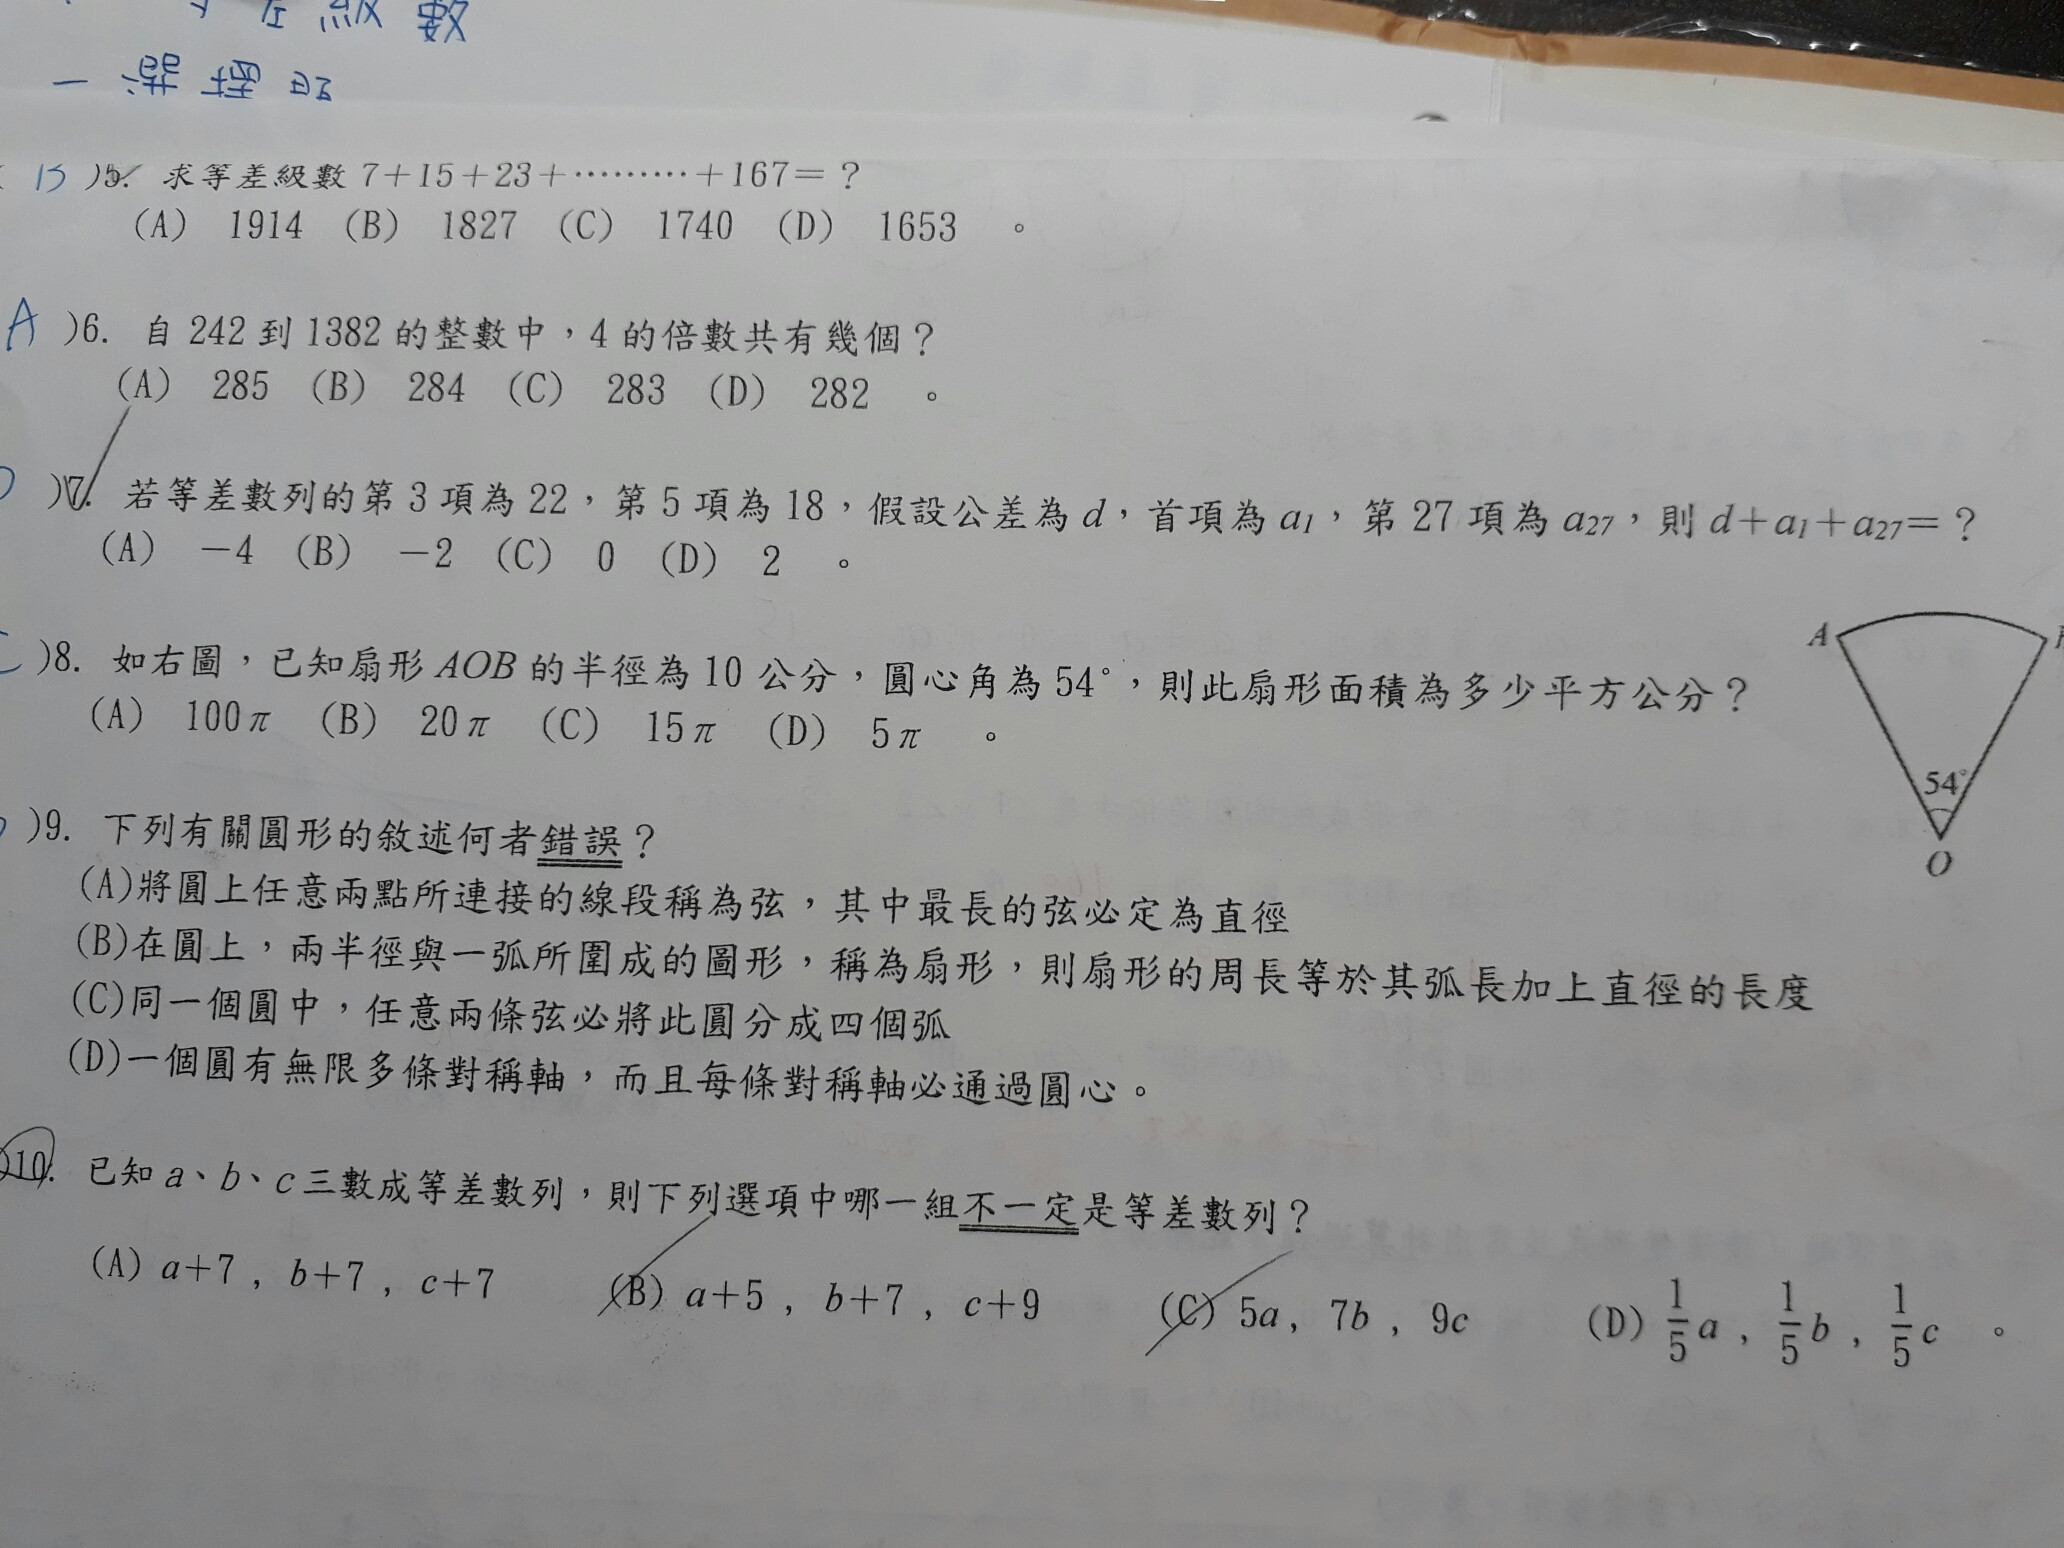 級數
一 選擇
)5. 求等差級數 7+15+23+………+167=?
(A) 1914 (B) 1827 (C) 1740 (D) 1653 。
A )6. 自 242 到 1382 的整數中,4 的倍數共有幾個?
(A) 285 (B) 284 (C) 283 (D) 282 。
)7. 若等差數列的第 3 項為 22,第 5 項為 18,假設公差為 d,首項為 a₁,第 27 項為 a₂₇,則 d+a₁+a₂₇=?
(A) -4 (B) -2 (C) 0 (D) 2 。
)8. 如右圖,已知扇形 AOB 的半徑為 10 公分,圓心角為 54°,則此扇形面積為多少平方公分?
(A) 100π (B) 20π (C) 15π (D) 5π 。
A
54°
O
)9. 下列有關圓形的敘述何者錯誤?
(A)將圓上任意兩點所連接的線段稱為弦,其中最長的弦必定為直徑
(B)在圓上,兩半徑與一弧所圍成的圖形,稱為扇形,則扇形的周長等於其弧長加上直徑的長度
(C)同一個圓中,任意兩條弦必將此圓分成四個弧
(D)一個圓有無限多條對稱軸,而且每條對稱軸必通過圓心。
)10. 已知 a、b、c 三數成等差數列,則下列選項中哪一組不一定是等差數列?
(A) a+7 , b+7 , c+7 (B) a+5 , b+7 , c+9 (C) 5a , 7b , 9c (D) 1/5 a , 1/5 b , 1/5 c 。